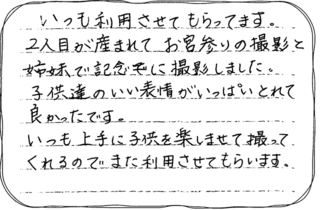 いつも利用させてもらってます。
2人目が産まれてお宮参りの撮影と
姉妹で記念に撮影しました。
子供達のいい表情がいっぱいとれて
良かったです。
いつも上手に子供を楽しませて撮って
くれるのでまた利用させてもらいます。